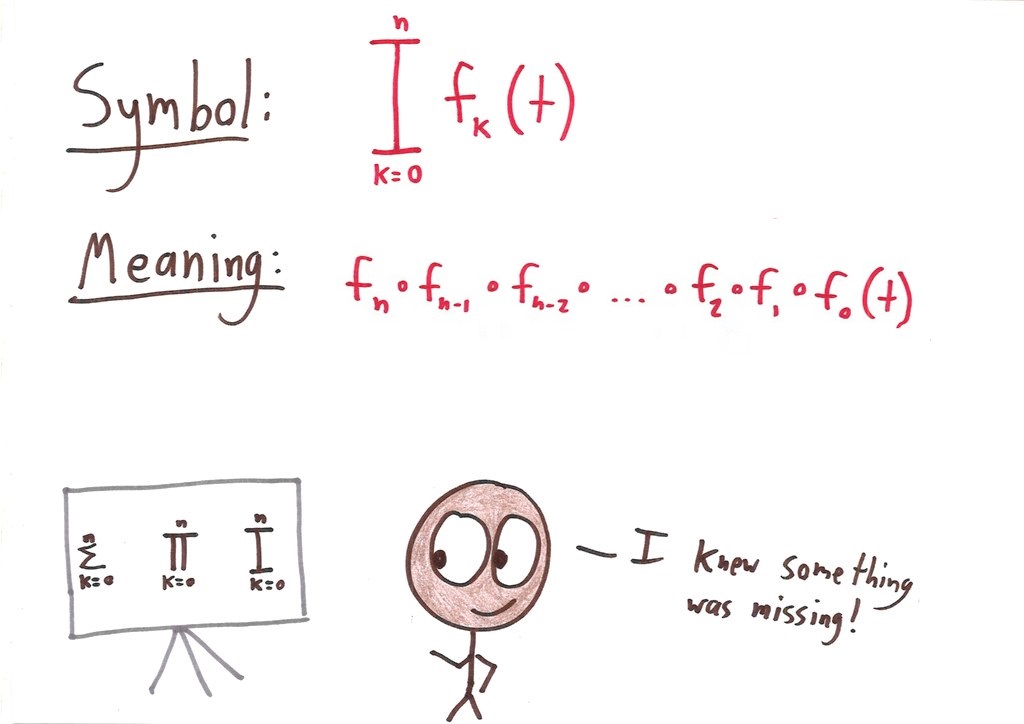 Symbol:
n
I f_k (t)
k=0
Meaning:
f_n ∘ f_n-1 ∘ f_n-2 ∘ ... ∘ f_2 ∘ f_1 ∘ f_0 (t)
n n n
Σ Π I
k=0 k=0 k=0
— I knew something
was missing!